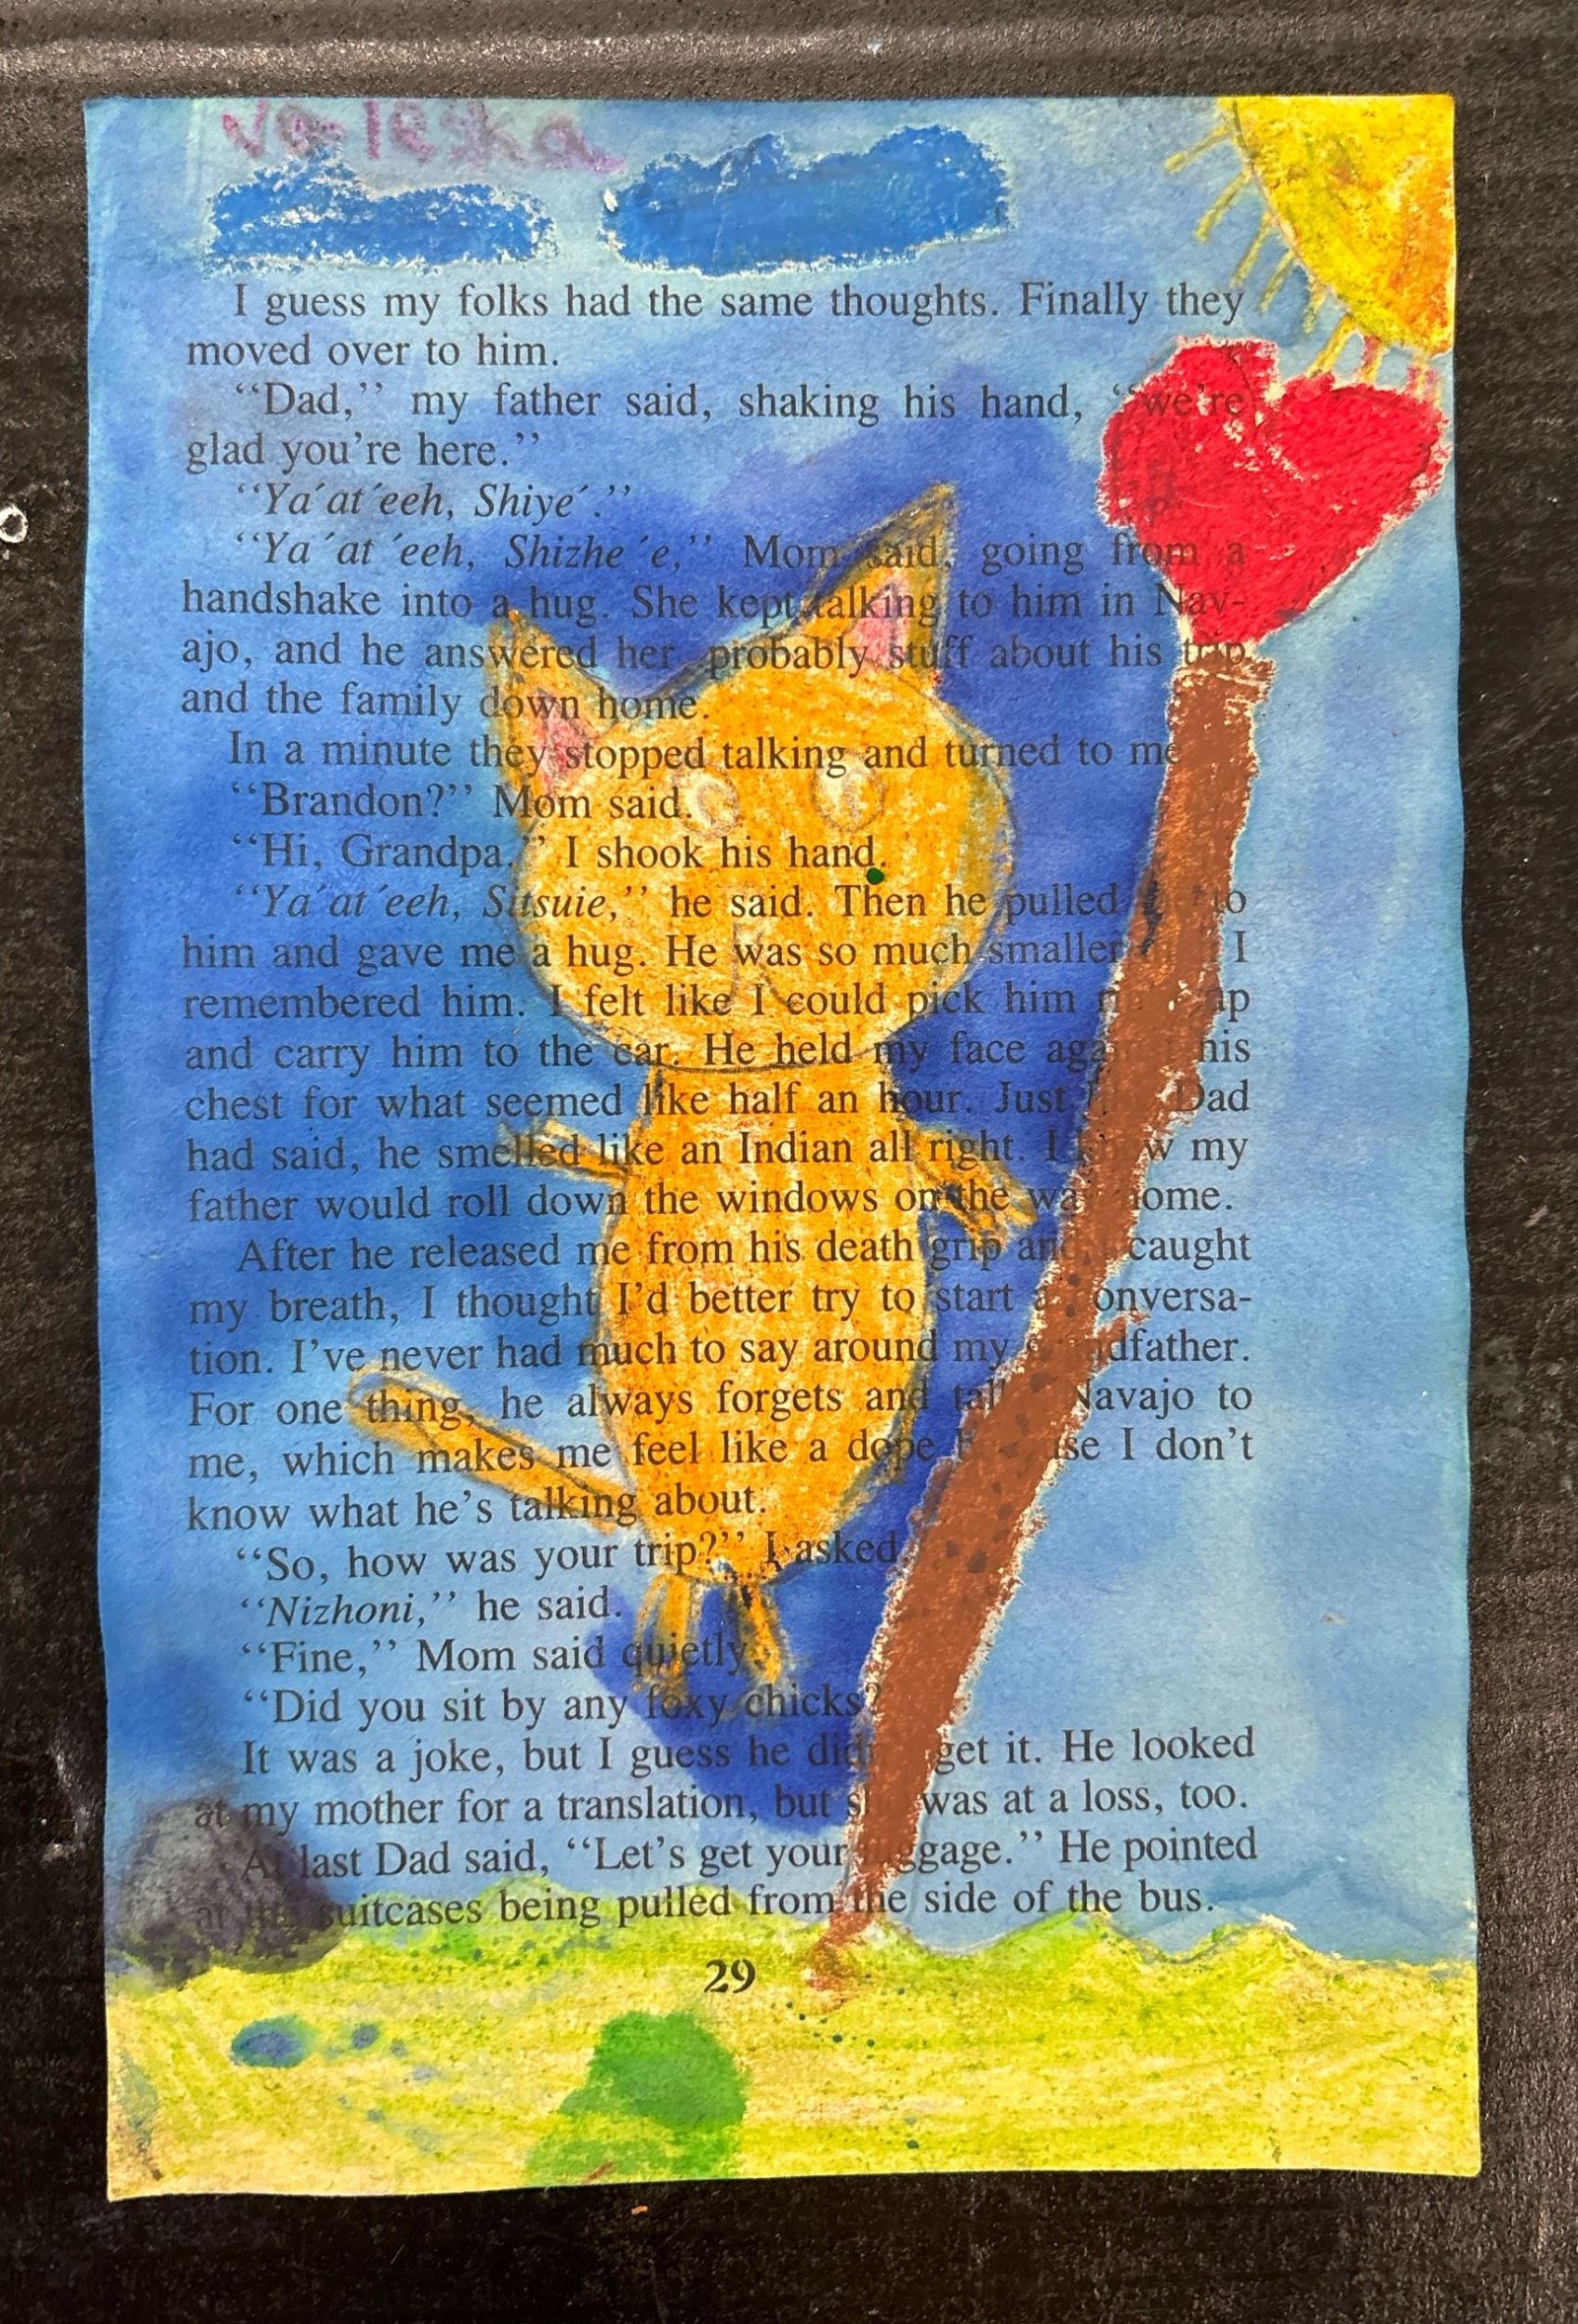 Valeska
I guess my folks had the same thoughts. Finally they
moved over to him.
“Dad,” my father said, shaking his hand, “we’re
glad you’re here.”
“Ya´at´eeh, Shiye´.”
“Ya´at´eeh, Shizhe´e,” Mom said, going from a
handshake into a hug. She kept talking to him in Nav-
ajo, and he answered her, probably stuff about his trip
and the family down home.
In a minute they stopped talking and turned to me
“Brandon?” Mom said.
“Hi, Grandpa.” I shook his hand.
“Ya´at´eeh, Sitsuie,” he said. Then he pulled to
him and gave me a hug. He was so much smaller I
remembered him. I felt like I could pick him up
and carry him to the car. He held my face against his
chest for what seemed like half an hour. Just Dad
had said, he smelled like an Indian all right. I know my
father would roll down the windows on the way home.
After he released me from his death grip and I caught
my breath, I thought I’d better try to start a conversa-
tion. I’ve never had much to say around my grandfather.
For one thing, he always forgets and talks Navajo to
me, which makes me feel like a dope because I don’t
know what he’s talking about.
“So, how was your trip?” I asked.
“Nizhoni,” he said.
“Fine,” Mom said quietly.
“Did you sit by any foxy chicks?
It was a joke, but I guess he didn’t get it. He looked
at my mother for a translation, but she was at a loss, too.
At last Dad said, “Let’s get your luggage.” He pointed
at the suitcases being pulled from the side of the bus.
29